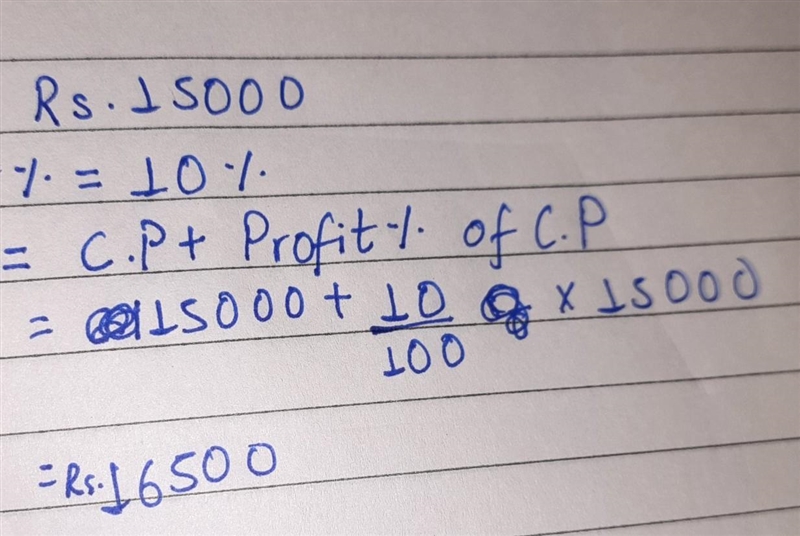 Rs. 15000
% = 10 %
= C.P + Profit % of C.P
= 15000 + 10/100 × 15000
= Rs. 16500